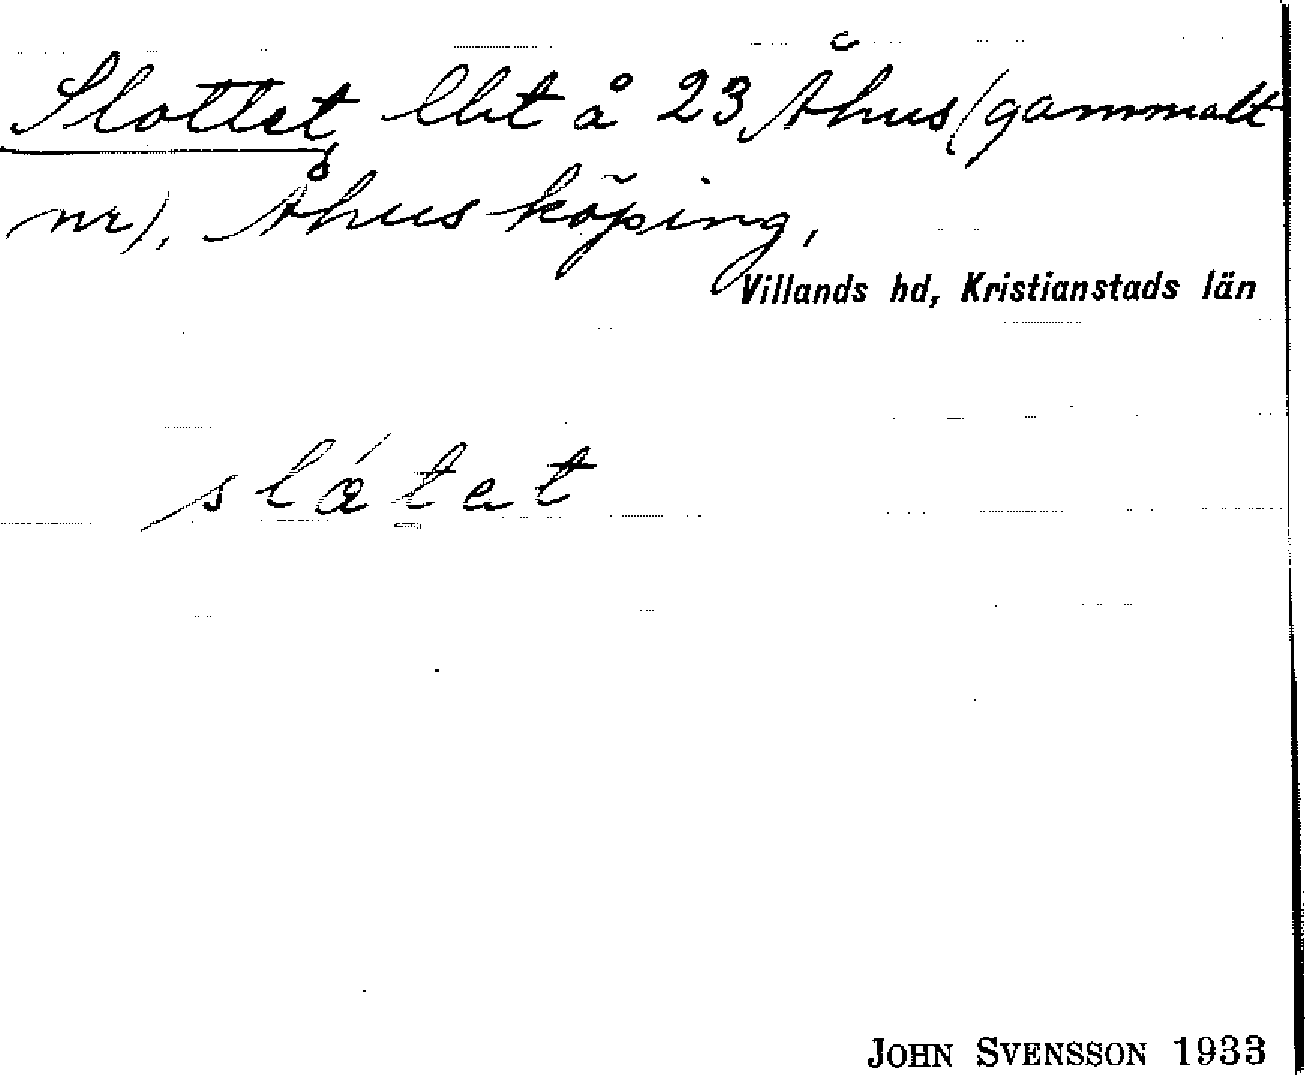 Slottet lht å 23 Åhus (gammalt
nr), Åhus köping,
Villands hd, Kristianstads län
slátet
JOHN SVENSSON 1933